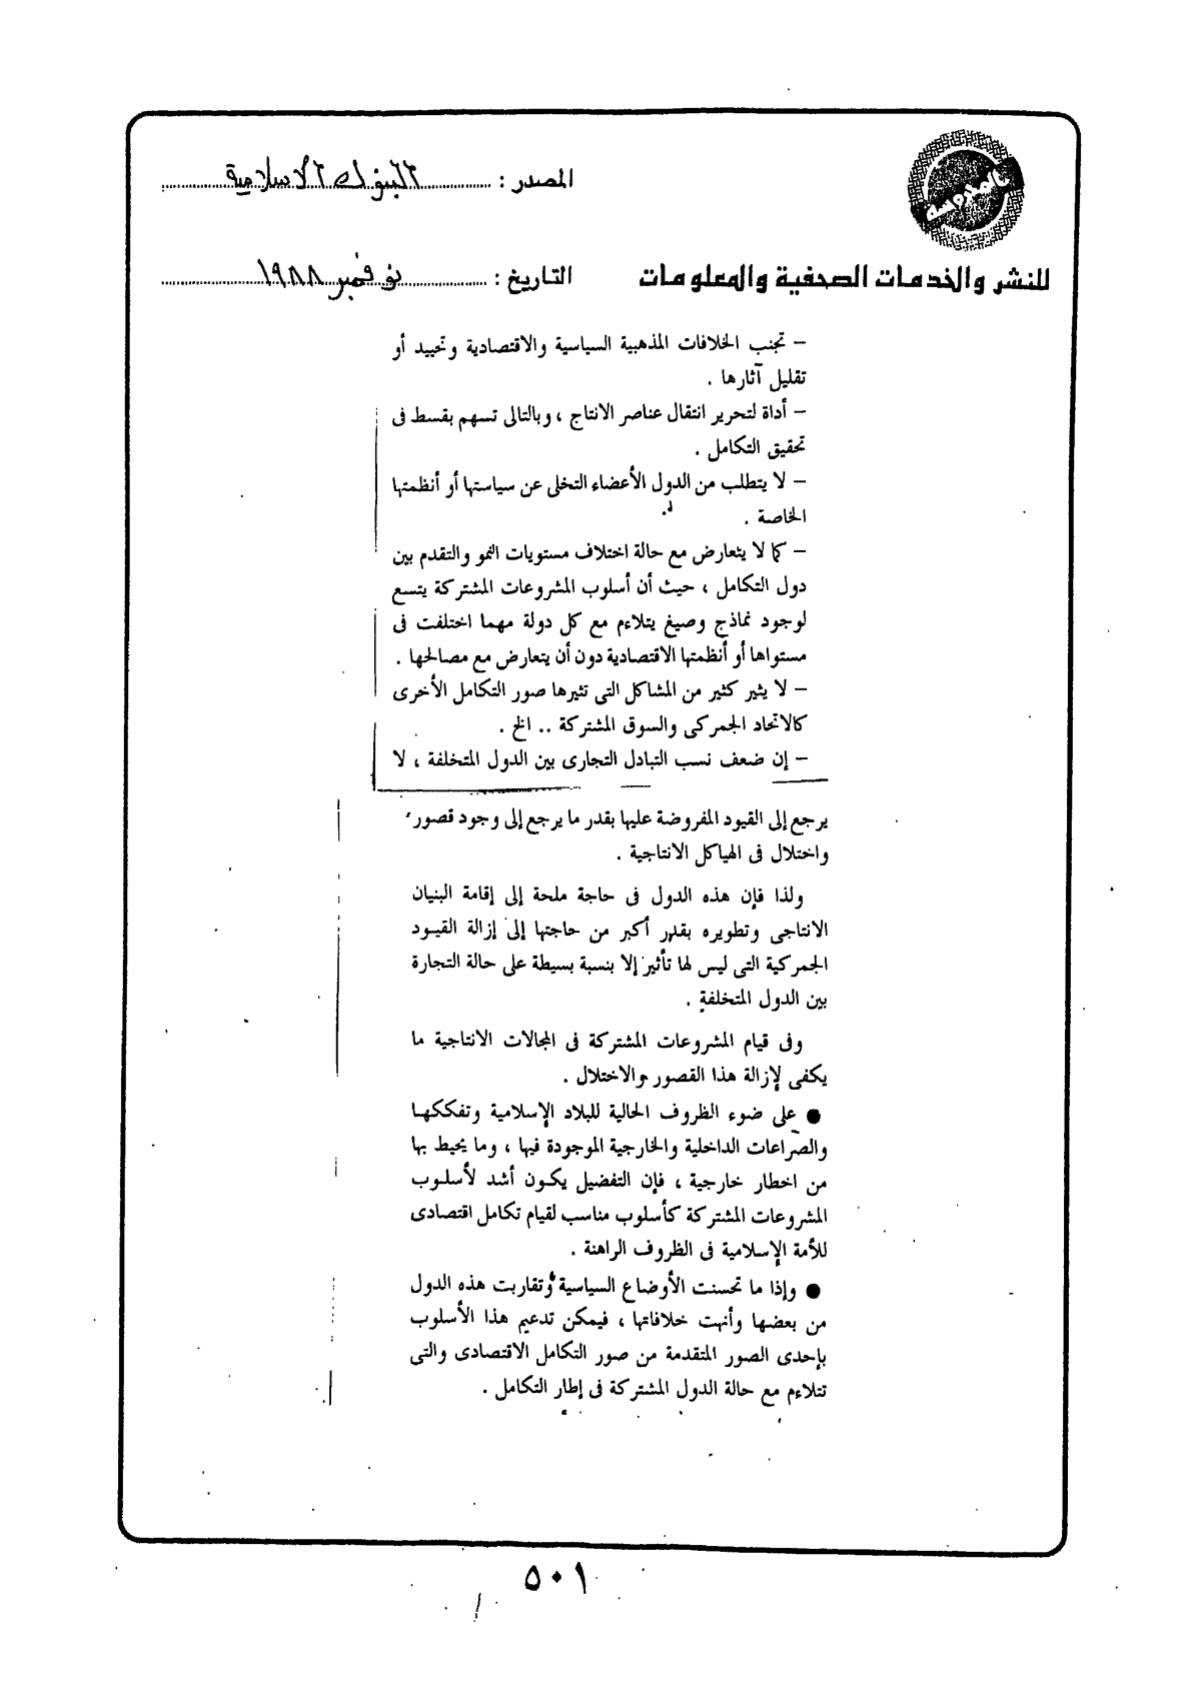 المحروسة
للنشر والخدمات الصحفية والمعلومات
المصدر : البنوك الاسلامية
التاريخ : نوفمبر ١٩٨٨
– تجنب الخلافات المذهبية السياسية والاقتصادية وتحييد أو
تقليل آثارها .
– أداة لتحرير انتقال عناصر الانتاج ، وبالتالى تسهم بقسط فى
تحقيق التكامل .
– لا يتطلب من الدول الأعضاء التخلى عن سياستها أو أنظمتها
الخاصة .
– كما لا يتعارض مع حالة اختلاف مستويات النمو والتقدم بين
دول التكامل ، حيث أن أسلوب المشروعات المشتركة يتسع
لوجود نماذج وصيغ يتلاءم مع كل دولة مهما اختلفت فى
مستواها أو أنظمتها الاقتصادية دون أن يتعارض مع مصالحها .
– لا يثير كثير من المشاكل التى تثيرها صور التكامل الأخرى
كالاتحاد الجمركى والسوق المشتركة .. الخ .
– إن ضعف نسب التبادل التجارى بين الدول المتخلفة ، لا
يرجع إلى القيود المفروضة عليها بقدر ما يرجع إلى وجود قصور
واختلال فى الهياكل الانتاجية .
ولذا فإن هذه الدول فى حاجة ملحة إلى إقامة البنيان
الانتاجى وتطويره بقدر أكبر من حاجتها إلى إزالة القيود
الجمركية التى ليس لها تأثير إلا بنسبة بسيطة على حالة التجارة
بين الدول المتخلفة .
وفى قيام المشروعات المشتركة فى المجالات الانتاجية ما
يكفى لإزالة هذا القصور والاختلال .
● على ضوء الظروف الحالية للبلاد الإسلامية وتفككها
والصراعات الداخلية والخارجية الموجودة فيها ، وما يحيط بها
من اخطار خارجية ، فإن التفضيل يكون أشد لأسلوب
المشروعات المشتركة كأسلوب مناسب لقيام تكامل اقتصادى
للأمة الإسلامية فى الظروف الراهنة .
● وإذا ما تحسنت الأوضاع السياسية وتقاربت هذه الدول
من بعضها وأنهت خلافاتها ، فيمكن تدعيم هذا الأسلوب
بإحدى الصور المتقدمة من صور التكامل الاقتصادى والتى
تتلاءم مع حالة الدول المشتركة فى إطار التكامل .
٥٠١